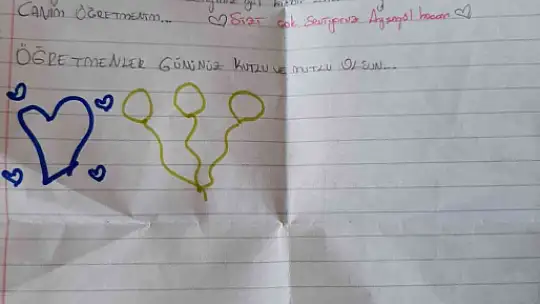 CANIM ÖĞRETMENİM... ♡ Sizi çok seviyoruz Ayşegül hocam ♡
ÖĞRETMENLER GÜNÜNÜZ KUTLU VE MUTLU OLSUN...